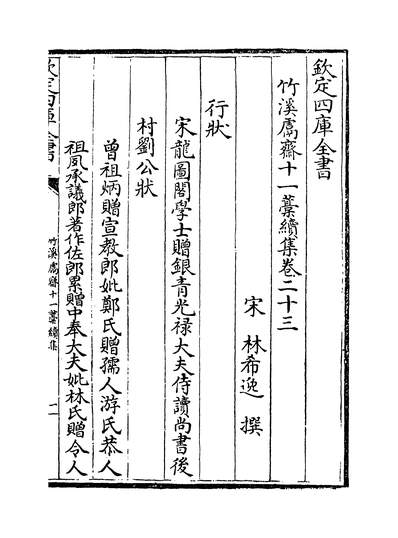 欽定四庫全書
竹溪鬳齋十一藁續集卷二十三
宋　林希逸　撰
行狀
宋龍圖閣學士贈銀青光禄大夫侍讀尚書後
村劉公狀
曾祖炳贈宣教郎妣鄭氏贈孺人游氏恭人
祖夙承議郎著作佐郎累贈中奉大夫妣林氏贈令人
欽定四庫全書
竹溪鬳齋十一藁續集
一